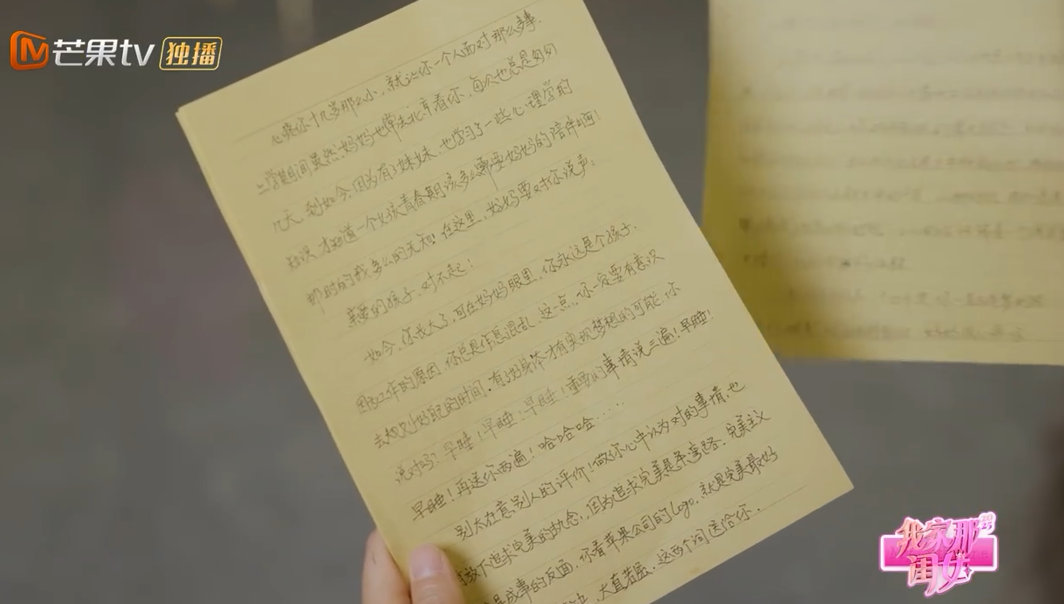 芒果tv 独播
心疼你十几岁那么小,就让你一个人面对那么多事
上学期间虽然妈妈也常去北京看你,每次也总是匆匆
几天,到如今,因为有了妹妹,也学习了一些心理学的
知识,才知道一个女孩青春期该多么需要妈妈的陪伴啊!
那时的我多么的无知!在这里,妈妈要对你说声:
亲爱的孩子,对不起!
如今,你长大了,可在妈妈眼里,你永远是个孩子.
因为工作的原因,你总是作息混乱,这一点,你一定要有意识
去规划好睡的时间,有了好身体才有实现梦想的可能,你
说对吗?早睡!早睡!早睡!重要的事情说三遍,早睡!
早睡!再送你两遍!哈哈哈……
别太在意别人的评价!做你心中认为对的事情,也
放下追求完美的执念,因为追求完美是条弯路,完美主义
是成事的反面,你看苹果公司的Logo,就是完美最好
大直若屈,这两个词送给你.
我家那闺女